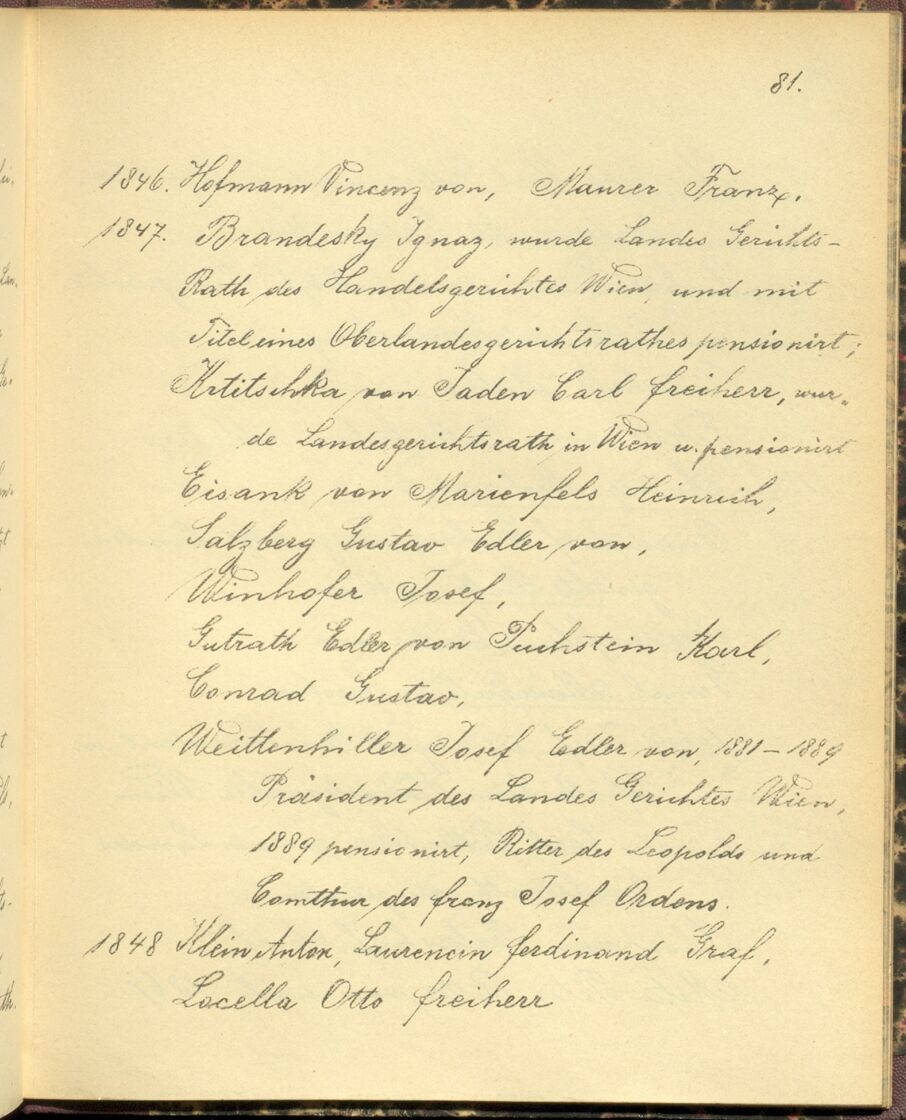 81.
1846. Hofmann Vincenz von, Maurer Franz.
1847. Brandesky Ignaz, wurde Landes Gerichts-
Rath des Handelsgerichtes Wien, und mit
Titel eines Oberlandesgerichtsrathes pensionirt;
Krtitschka von Jaden Carl Freiherr, wur-
de Landesgerichtsrath in Wien u. pensionirt
Eisank von Marienfels Heinrich,
Salzberg Gustav Edler von,
Winhofer Josef,
Gutrath Edler von Puchstein Karl,
Conrad Gustav,
Weittenhiller Josef Edler von, 1881-1889
Präsident des Landes Gerichtes Wien,
1889 pensionirt, Ritter des Leopolds und
Comthur des Franz Josef Ordens.
1848 Klein Anton, Laurencin Ferdinand Graf,
Locella Otto Freiherr